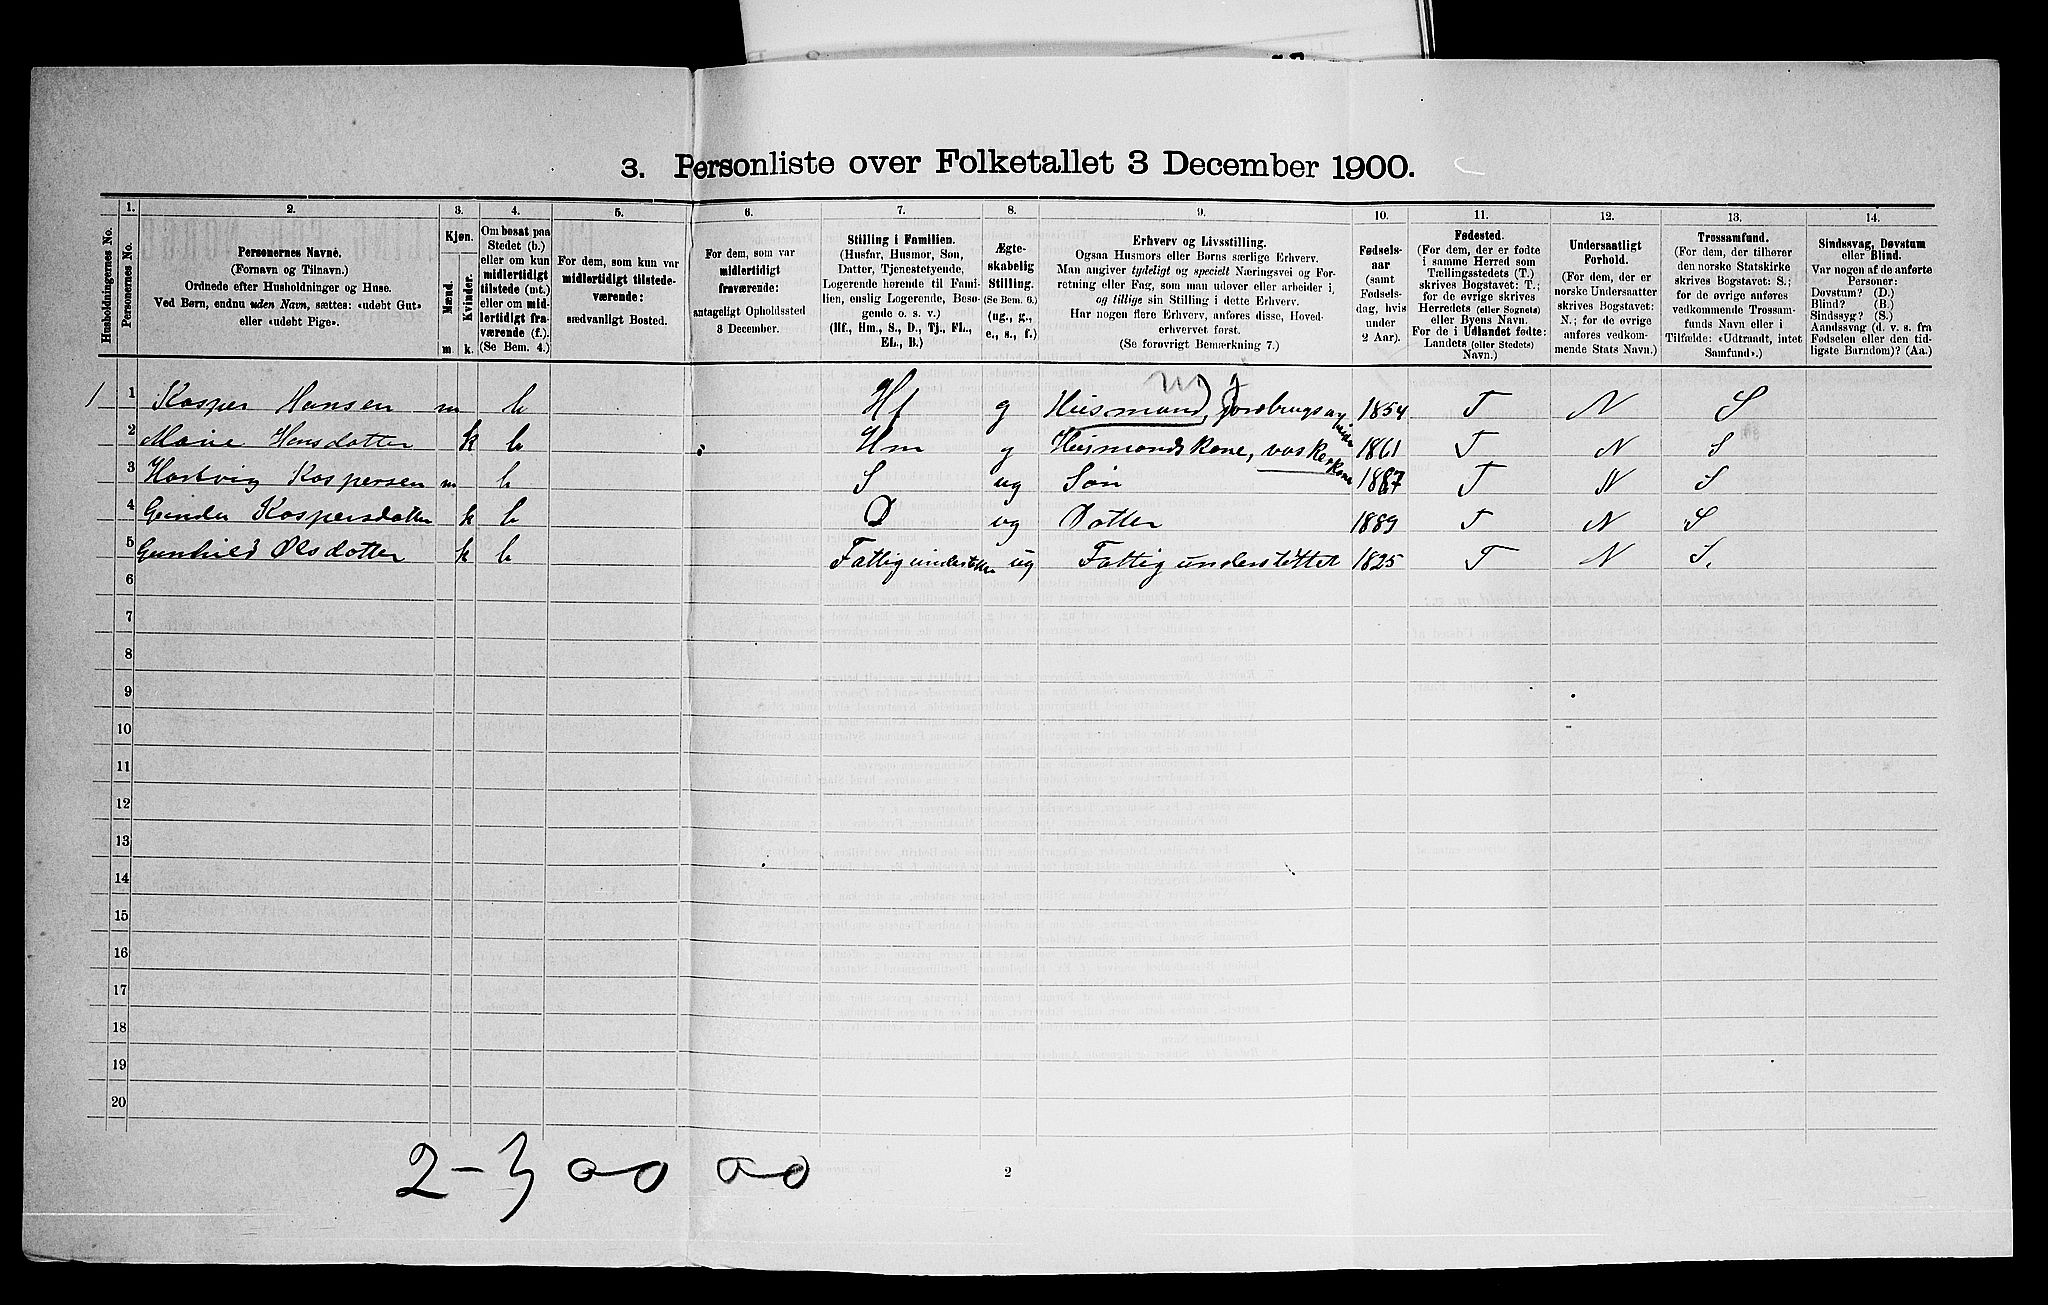 3. Personliste over Folketallet 3 December 1900.
Husholdningernes No.
1.
Personernes No.
2.
Personernes Navne.
(Fornavn og Tilnavn.)
Ordnede efter Husholdninger og Huse.
Ved Børn, endnu uden Navn, sættes: «udøbt Gut»
eller «udøbt Pige».
3.
Kjøn.
Mænd.
Kvinder.
m. k.
4.
Om bosat paa
Stedet (b.)
eller om kun
midlertidigt
tilstede (mt.)
eller om mid-
lertidigt fra-
værende (f.).
(Se Bem. 4.)
5.
For dem, som kun var
midlertidigt tilstede-
værende:
sædvanligt Bosted.
6.
For dem, som var
midlertidigt
fraværende:
antageligt Opholdssted
3 December.
7.
Stilling i Familien.
(Husfar, Husmor, Søn,
Datter, Tjenestetyende,
Logerende hørende til Fami-
lien, enslig Logerende, Besø-
gende o. s. v.)
(Hf., Hm., S., D., Tj., FL.,
EL., B.)
8.
Ægte-
skabelig
Stilling.
(Se Bem. 6.)
(ug., g.,
e., s., f.)
9.
Erhverv og Livsstilling.
Ogsaa Husmors eller Børns særlige Erhverv.
Man angiver tydeligt og specielt Næringsvei og For-
retning eller Fag, som man udøver eller arbeider i,
og tillige sin Stilling i dette Erhverv.
Har nogen flere Erhverv, anføres disse, Hoved-
erhvervet først.
(Se forøvrigt Bemærkning 7.)
10.
Fødsels-
aar
(samt
Fødsels-
dag, hvis
under
2 Aar).
11.
Fødested.
(For dem, der er fødte
i samme Herred som
Tællingsstedets (T.)
skrives Bogstavet: T.;
for de øvrige skrives
Herredets (eller Sognets)
eller Byens Navn.
For de i Udlandet fødte:
Landets (eller Stedets)
Navn.)
12.
Undersaatligt
Forhold.
(For dem, der er
norske Undersaatter
skrives Bogstavet:
N.; for de øvrige
anføres vedkom-
mende Stats Navn.)
13.
Trossamfund.
(For dem, der tilhører
den norske Statskirke
skrives Bogstavet: S.;
for de øvrige anføres
vedkommende Trossam-
funds Navn eller i
Tilfælde: «Udtraadt, intet
Samfund».)
14.
Sindssvag, Døvstum
eller Blind.
Var nogen af de anførte
Personer:
Døvstum? (D.)
Blind? (B.)
Sindssyg? (S.)
Aandssvag (d. v. s. fra
Fødselen eller den tid-
ligste Barndom)? (Aa.)
1 1 Kasper Hansen m b Hf g Husmand, Jordbrugsarbeider 1854 T N S
2 Marie Hansdatter k b Hm g Husmandskone, vaskerkone 1861 T N S
3 Hartvig Kaspersen m b S ug Søn 1887 T N S
4 Gunder Kaspersdatter k b D ug Datter 1889 T N S
5 Gunhild Olsdatter k b Fattigunderstøttet ug Fattigunderstøttet 1825 T N S.
6
7
8
9
10
11
12
13
14
15
16
17
18
19
20
2-3 00 00
2